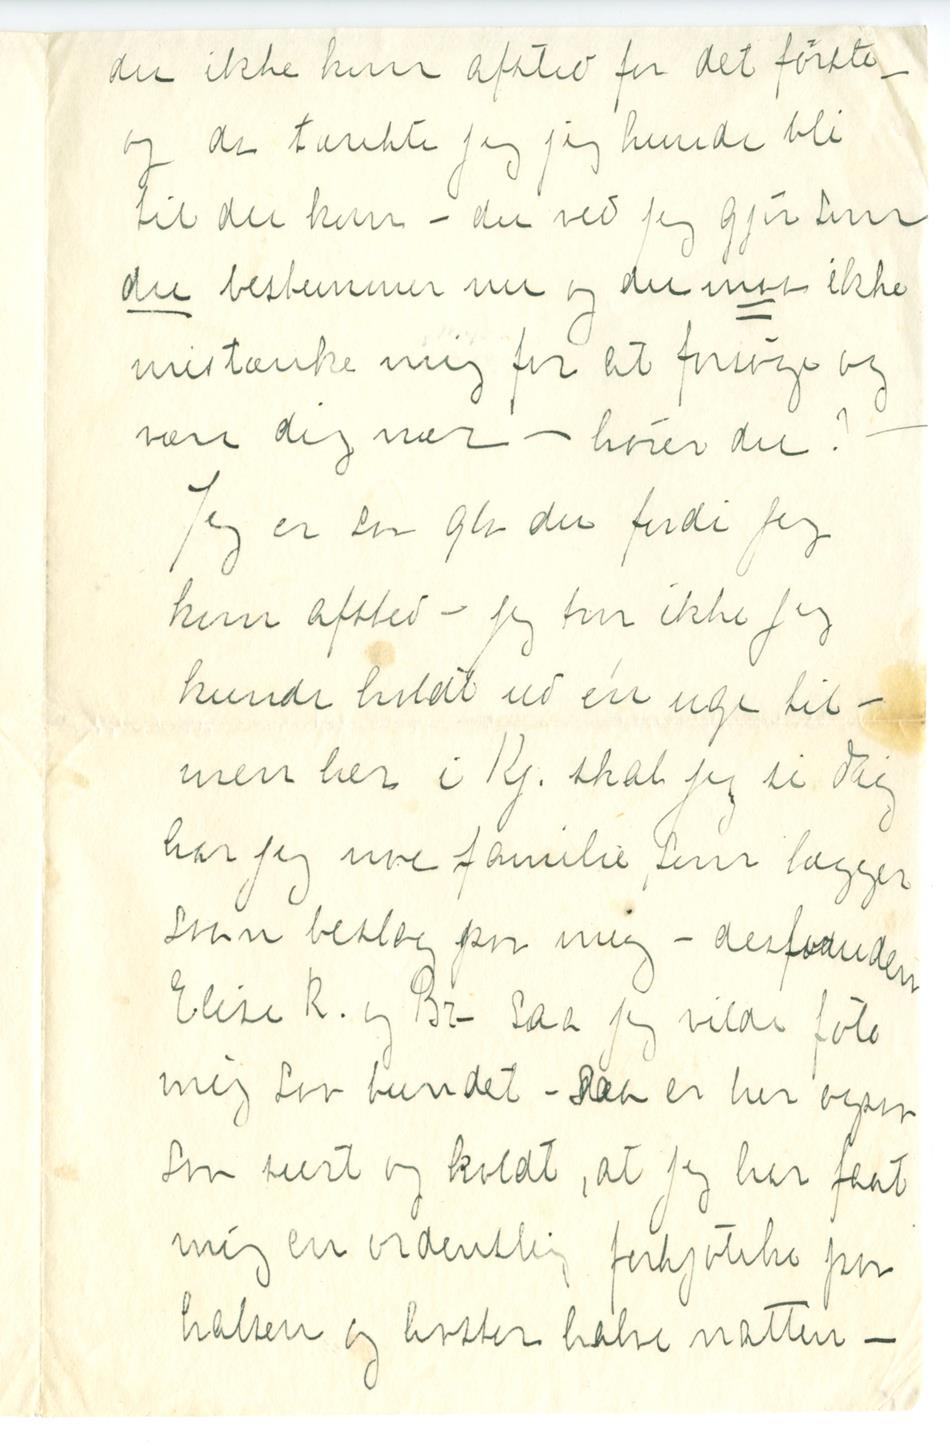 du ikke kom afsted for det første –
og da tænkte jeg jeg kunde bli
til du kom – du ved jeg gjør som
du bestemmer nu og du maa ikke
mistænke mig for at forsøge og
være dig nær – hører du? –
Jeg er saa gla du fordi jeg
kom afsted – jeg tror ikke jeg
kunde holdt ud én uge til –
men her i Kj. skal jeg si dig
har jeg noe familie, som lægger
saan beslag paa mig – desforuden
Elise K. og Br – saa jeg vilde føle
mig saa bundet – saa er her ogsaa
saa surt og koldt, at jeg har faat
mig en ordentlig forkjølelse paa
halsen og hoster halve natten –